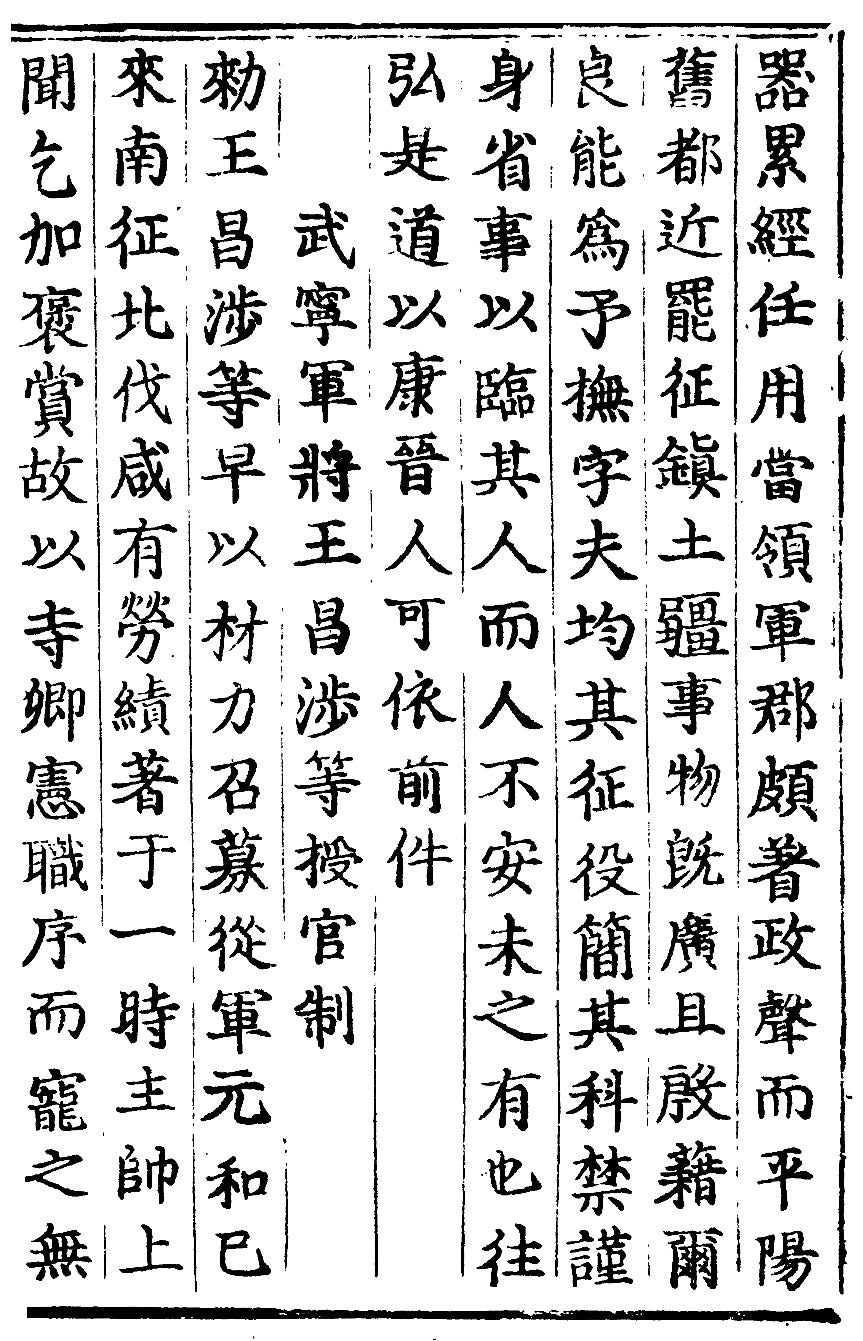 器累經任用當領軍郡頗著政聲而平陽
舊都近罷征鎮土疆事物旣廣且殷藉爾
良能爲予撫字夫均其征役簡其科禁謹
身省事以臨其人而人不安未之有也往
弘是道以康晉人可依前件
武寧軍將王昌涉等授官制
勑王昌涉等早以材力召募從軍元和已
來南征北伐咸有勞績著于一時主帥上
聞乞加褒賞故以寺卿憲職序而寵之無